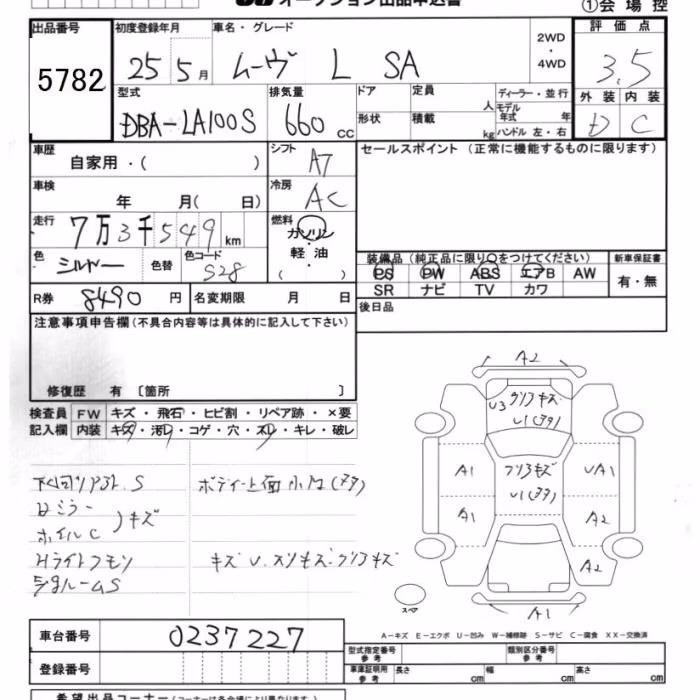 オークション出品申込書
①会場控
出品番号 初度登録年月 車名・グレード 評価点
5782 25年5月 ムーヴ L SA 2WD・4WD 3.5
型式 排気量 ドア 定員 人 ディーラー・並行 外装 内装
DBA-LA100S 660cc 形状 積載 kg モデル年式 年 ハンドル 左・右 D C
車歴 自家用・( ) シフト AT セールスポイント(正常に機能するものに限ります)
車検 年 月( 日) 冷房 AC
走行 7万3千549km 燃料 ガソリン
色 シルバー 色替 色コード S28 軽油 ( )
装備品(純正品に限り○をつけてください) 新車保証書
PS PW ABS エアB AW 有・無
SR ナビ TV カワ
R券 8490円 名変期限 月 日 後日品
注意事項申告欄(不具合内容等は具体的に記入して下さい)
修復歴 有〔箇所 〕
検査員 FW キズ・飛石・ヒビ割・リペア跡・×要
記入欄 内装 キズ・汚レ・コゲ・穴・スレ・キレ・破レ
A2
U3 クリアキズ
U1(多タ)
A1 クリアキズ UA1
U1(多タ)
A1 A2
A2
A1
スペア
S ボディー上面小凹(多タ)
ミラー
ホイルC )キズ
Hライトクモリ キズ U.スリキズ.クリアキズ
ルームS
A-キズ E-エクボ U-凹み W-補修跡 S-サビ C-腐食 XX-交換済
車台番号 0237227
型式指定番号 参考 類別区分番号 参考
登録番号 車庫証明用 参考 長さ cm 幅 cm 高さ cm
希望出品コーナー(コーナーは各会場により異なります)